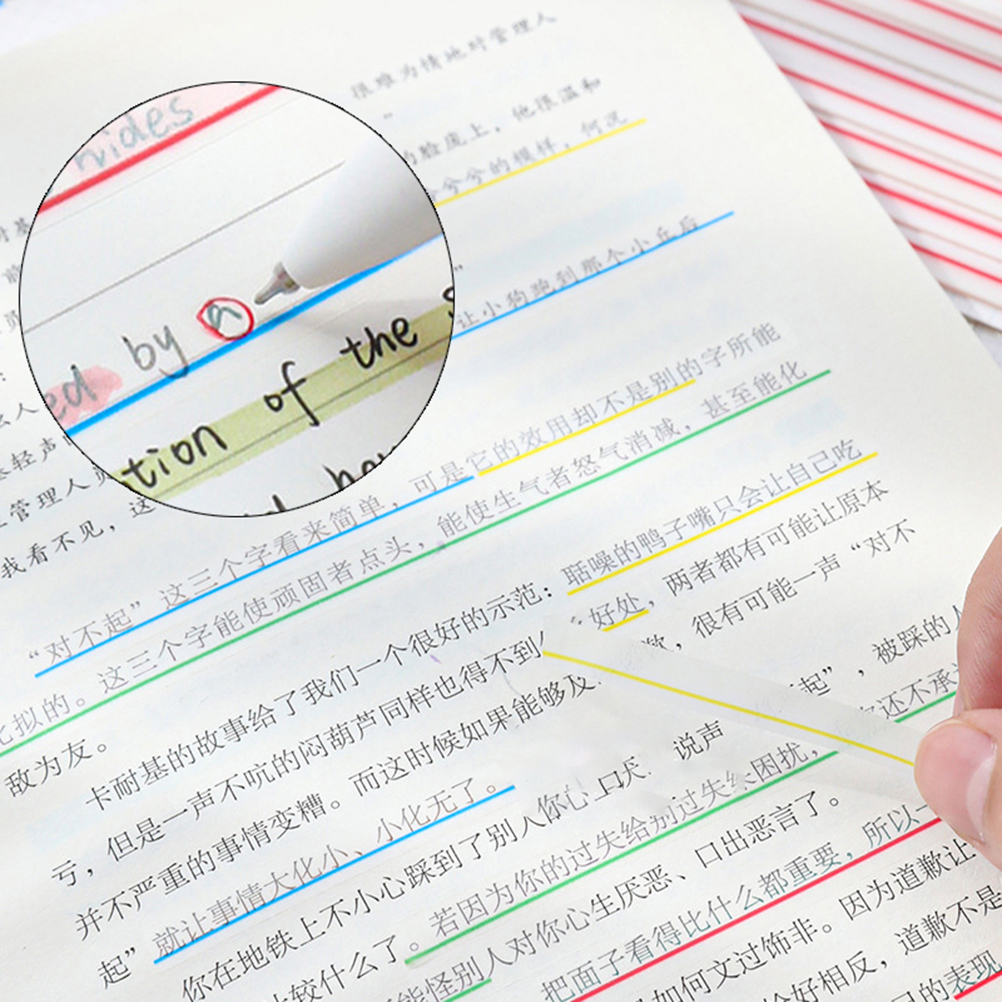 很难为情地对管理人
脸庞上，他很温和
兮兮的模样，何况
让小狗跑到那个小丘后
vides
ed by a
tion of the
我看不见，这
“对不起”这三个字看来简单，可是它的效用却不是别的字所能
比拟的。这三个字能使顽固者点头，能使生气者怒气消减，甚至能化
敌为友。
卡耐基的故事给了我们一个很好的示范：聒噪的鸭子嘴只会让自己吃
亏，但是一声不吭的闷葫芦同样也得不到 好处，两者都有可能让原本
并不严重的事情变糟。而这时候如果能够及 很有可能一声“对不
起”就让事情大化小、小化无了。
你在地铁上不小心踩到了别人 说声 起”，被踩的人
较什么了。若因为你的过失给别 过失 困扰， 还不承
怪别人对你心生厌恶、口出恶言了。
把面子看得比什么都重要，所以一
如何文过饰非。因为道歉让
恰好相反，道歉不是
的表现